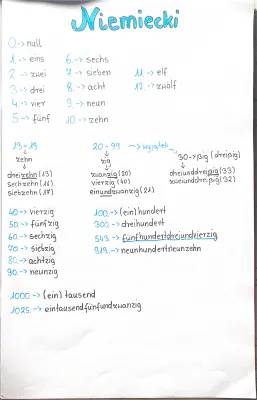 Niemiecki
0 → null
1 → eins
2 → zwei
3 → drei
4 → vier
5 → fünf
6 → sechs
7 → sieben
8 → acht
9 → neun
10 → zehn
11 → elf
12 → zwölf
13-19
↓
zehn
↓
dreizehn (13)
sechzehn (16)
siebzehn (17)
20-99 → wyjątek
↓
zig
↓
zwanzig (20)
vierzig (40)
einundzwanzig (21)
30 → ßig (dreißig)
↓
dreiunddreißig (33)
zweiunddreißig (32)
40 → vierzig
50 → fünfzig
60 → sechzig
70 → siebzig
80 → achtzig
90 → neunzig
100 → (ein)hundert
300 → dreihundert
543 → fünfhundertdreiundvierzig
919 → neunhundertneunzehn
1000 → (ein)tausend
1025 → eintausendfünfundzwanzig